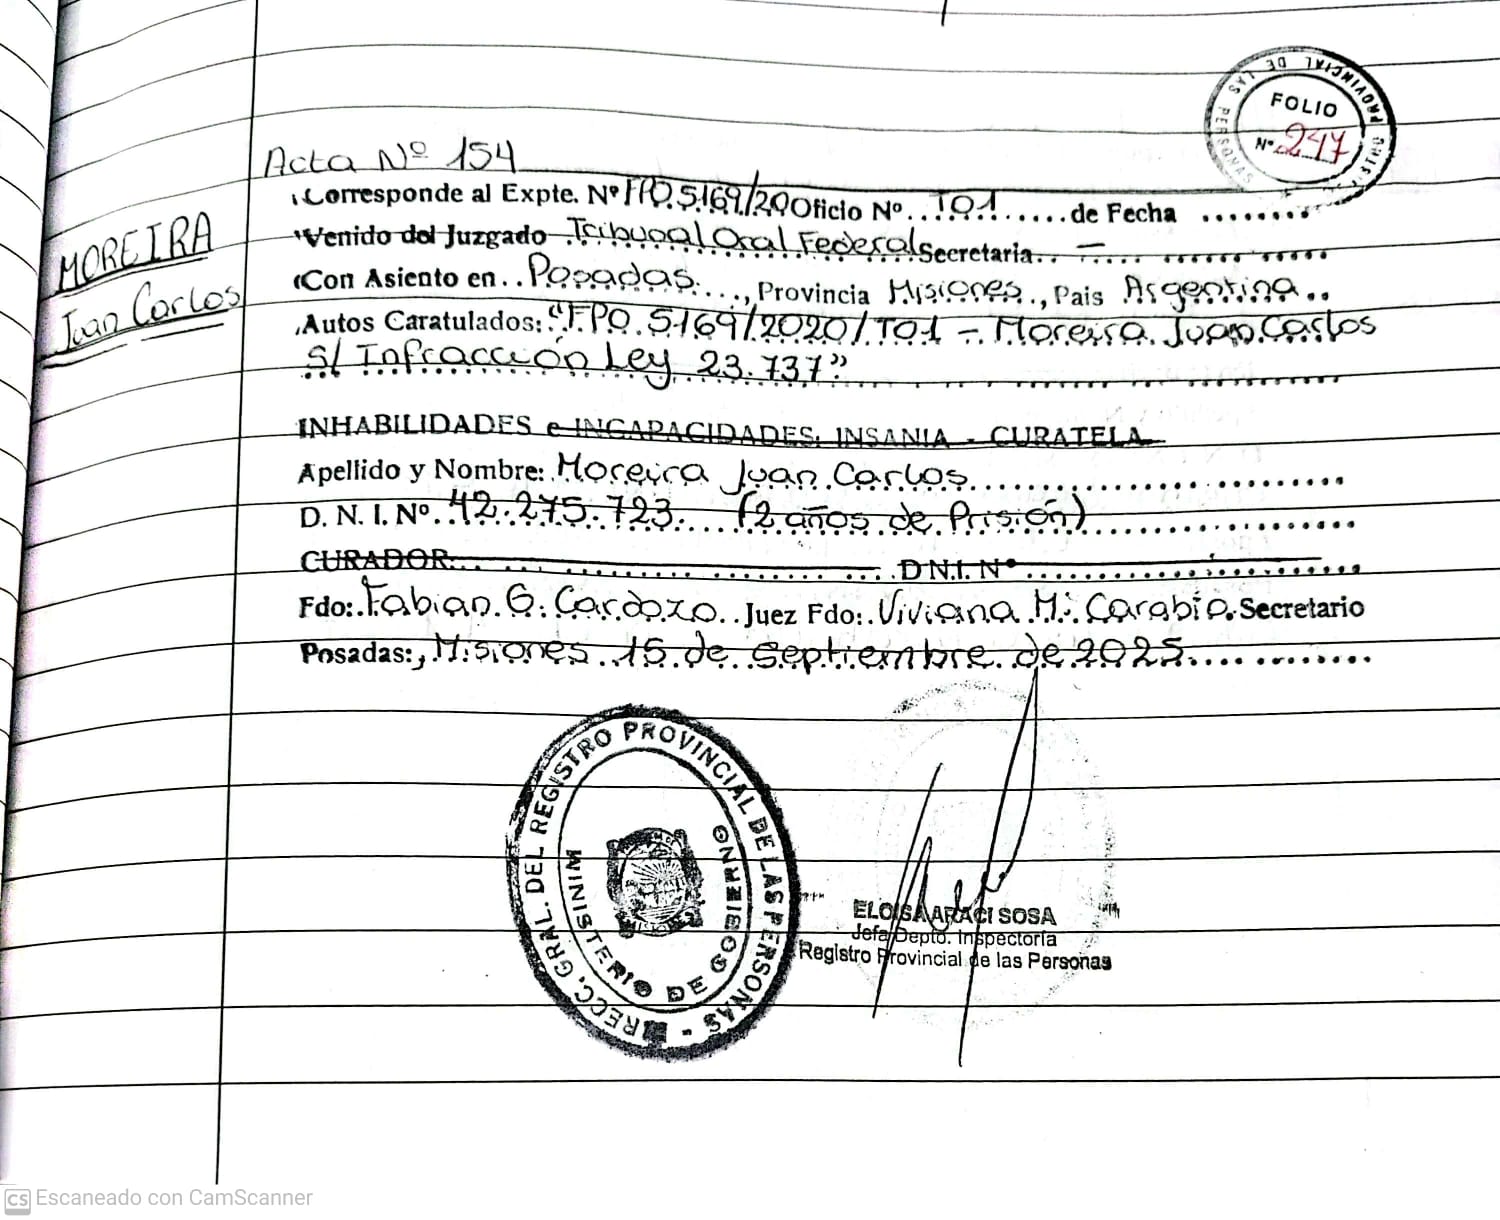 PROVINCIAL DE LAS PERSONAS
FOLIO
Nº 247
Acta Nº 154
Corresponde al Expte. Nº FPO.5169/20 Oficio Nº....TO1......de Fecha ........
MOREIRA
Juan Carlos
Venido del Juzgado Tribunal Oral Federal Secretaria.. – .....
Con Asiento en..Posadas...., Provincia Misiones., Pais Argentina..
Autos Caratulados: "FPO.5169/2020/TO1 – Moreira Juan Carlos
S/ Infracción Ley 23.737"
INHABILIDADES e INCAPACIDADES, INSANIA - CURATELA
Apellido y Nombre: Moreira Juan Carlos
D. N. I. Nº. 42.275.723. (2 años de Prisión)
CURADOR........ D N.I. Nº........
Fdo: Fabian.G. Cardozo.. Juez Fdo: Viviana M. Carabio. Secretario
Posadas:, Misiones 15 de septiembre de 2025
DIRECC. GRAL. DEL REGISTRO PROVINCIAL DE LAS PERSONAS -
MINISTERIO DE GOBIERNO
MISIONES
ELOISA ARACI SOSA
Jefa Depto. Inspectoría
Registro Provincial de las Personas
CS Escaneado con CamScanner